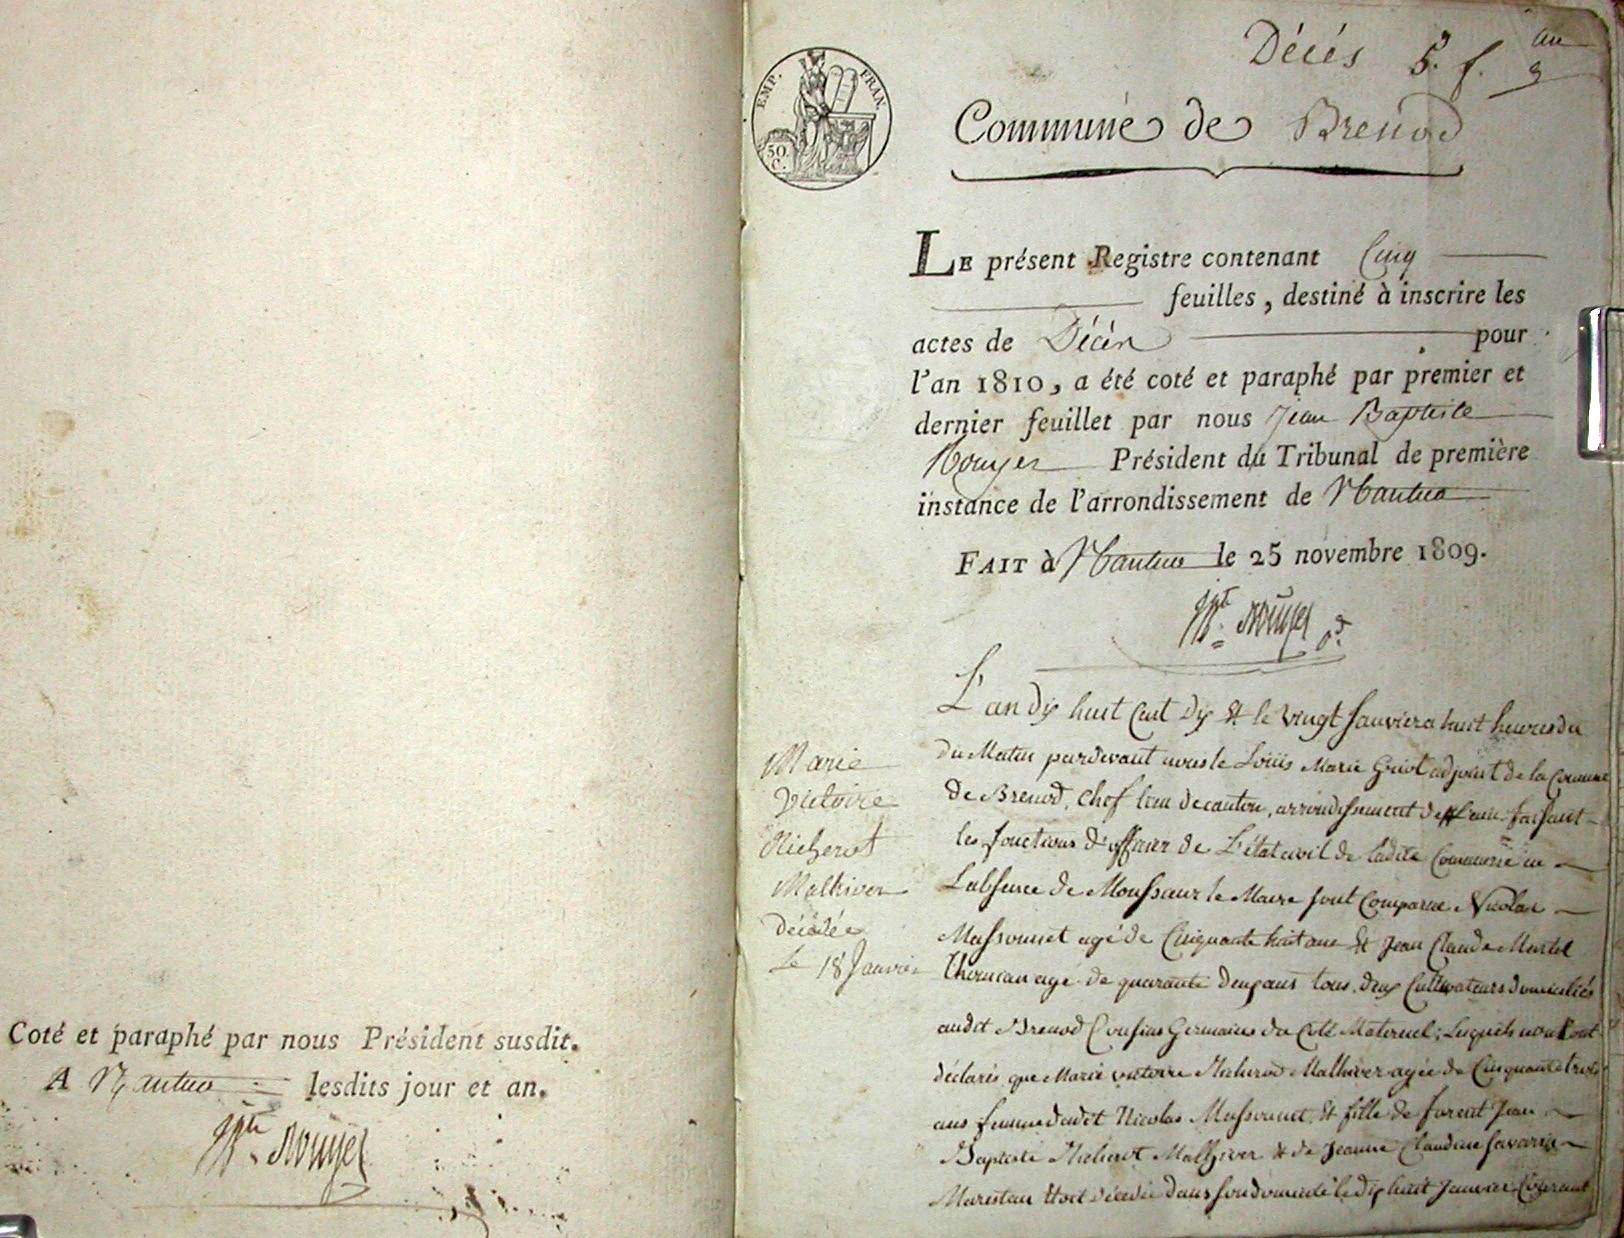 Coté et paraphé par nous Président susdit.
A Nantua lesdits jour et an.
Jn Bte Rouyer
EMP. FRAN.
50.
C.
Décés 5. f. an
9
Commune de Brenod
LE présent Registre contenant Cinq
feuilles, destiné à inscrire les
actes de Décès pour
l'an 1810, a été coté et paraphé par premier et
dernier feuillet par nous Jean Baptiste
Rouyer Président du Tribunal de première
instance de l'arrondissement de Nantua
FAIT à Nantua le 25 novembre 1809.
Rouyer
Marie
Victoire
Richerot
Malhiver
décédée
Le 18 Janvier
L'an dix huit Cent Dix & le vingt Janvier a huit heures du
du Matin pardevant nous Louis Marie Griot adjoint de la Commune
de Brenod, chef lieu de canton, arrondissement de faisant
les fonctions d'officier de L'état civil de ladite Commune en
L'absence de Monsieur le Maire sont Comparus Nicolas
Massonnet agé de Cinquante huit ans & Jean Claude Martel
agé de quarante deux ans tous deux Cultivateurs domiciliés
audit Brenod Cousins Germains du Coté Maternel; Lesquels nous ont
déclarés que Marie victoire Richerot Malhiver agée de Cinquante trois
ans femme dudit Nicolas Massonnet, & fille de Jean
Baptiste Richerot Malhiver & de Jeanne Claudine Savarin
Etoit décédée dans son domicile le dix huit Janvier Courant